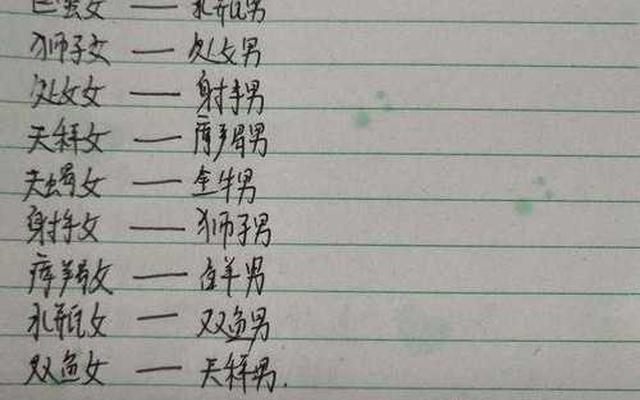 巨蟹女 — 水瓶男
狮子女 — 处女男
处女女 — 射手男
天秤女 — 摩羯男
天蝎女 — 金牛男
射手女 — 狮子男
摩羯女 — 白羊男
水瓶女 — 双鱼男
双鱼女 — 天秤男.